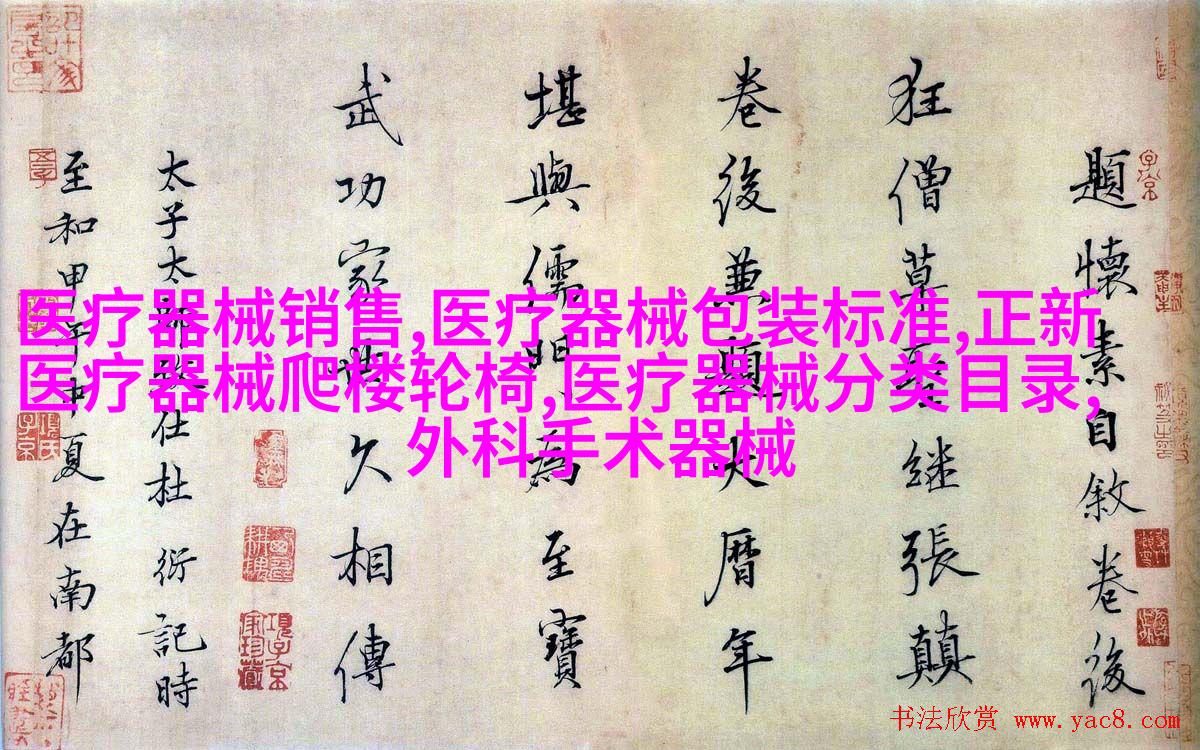 医疗器械销售,医疗器械包装标准,正新
医疗器械爬楼轮椅,医疗器械分类目录,
外科手术器械
題懷素自敘卷後
狂僧草聖継張顛
卷後兼題大曆年
堪與儒門為至寶
武功家久相傳
太子太師致仕杜 衍記時
至和甲午中夏在南都
书法欣赏 www.yac8.com